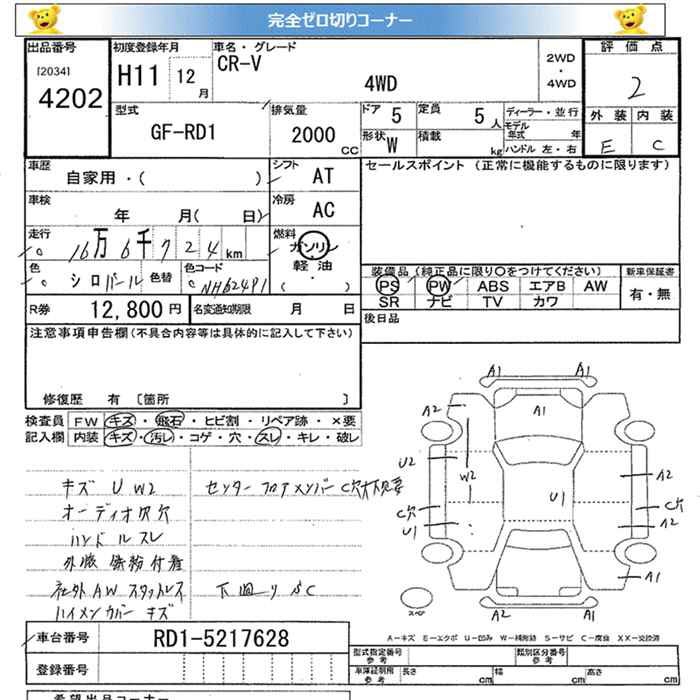 完全ゼロ切りコーナー
出品番号
[2034]
4202
初度登録年月
H11 12月
車名・グレード
CR-V
4WD
2WD・4WD
評価点
2
外装 内装
E C
型式
GF-RD1
排気量
2000cc
ドア 5
定員 5人
形状 W
積載 kg
ディーラー・並行
モデル年式 年
ハンドル 左・右
車歴
自家用・( )
シフト AT
車検
年 月( 日)
冷房 AC
走行
16万6千724km
燃料
ガソリン
軽油
( )
色 シロパール
色替
色コード NH624P1
R券 12,800円
名変通知期限 月 日
セールスポイント (正常に機能するものに限ります)
装備品 (純正品に限り○をつけてください)
PS PW ABS エアB AW
SR ナビ TV カワ
新車保証書
有・無
後日品
注意事項申告欄(不具合内容等は具体的に記入して下さい)
修復歴 有 〔箇所 〕
検査員記入欄
FW キズ・飛石・ヒビ割・リペア跡・×要
内装 キズ・汚レ・コゲ・穴・スレ・キレ・破レ
キズ U W2
オーディオ吹穴
ハンドルスレ
社外AW スタッドレス
ハイメンカバー キズ
センターフロアメンバー C穴
下廻りSC
A1 A1
A2 A1
U2 W2 A2
U1
C穴 C穴
U1 A2
A1
スペア
A2 A1
A-キズ E-エクボ U-凹み W-補修跡 S-サビ C-腐食 XX-交換済
車台番号 RD1-5217628
登録番号
型式指定番号 参考
類別区分番号 参考
車庫証明用 参考
長さ cm 幅 cm 高さ cm
希望出品コーナー